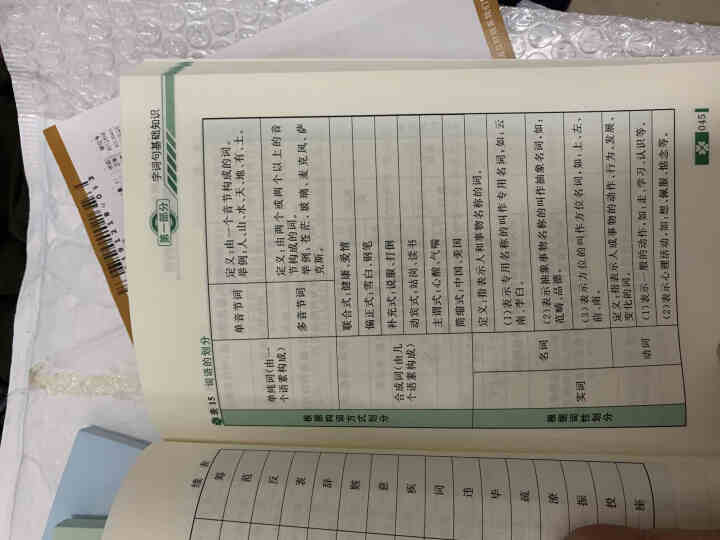 第一部分 字词句基础知识
表15 词语的划分
根据构词方式划分
单纯词(由一
个语素构成)
单音节词
定义:由一个音节构成的词。
举例:人、山、水、天、地、有、土。
多音节词
定义:由两个或两个以上的音
节构成的词。
举例:苍茫、玻璃、麦克风、萨
克斯。
合成词(由几
个语素构成)
联合式:健康、爱惜
偏正式:雪白、钢笔
补充式:说服、打倒
动宾式:站岗、读书
主谓式:心酸、气喘
简缩式:中国、美国
根据词性划分
实词
名词
定义:指表示人和事物名称的词。
(1)表示专用名称的叫作专用名词,如:云
南、李白。
(2)表示抽象事物名称的叫作抽象名词,如:
范畴、品德。
(3)表示方位的叫作方位名词,如:上、左、
前、南。
动词
定义:指表示人或事物的动作、行为、发展、
变化的词。
(1)表示一般的动作,如:走、学习、认识等。
(2)表示心理活动,如:想、佩服、惦念等。
045
续表
筹
范
反
表
辞
勉
意
疾
词
违
毕
疏
潦
振
投
座